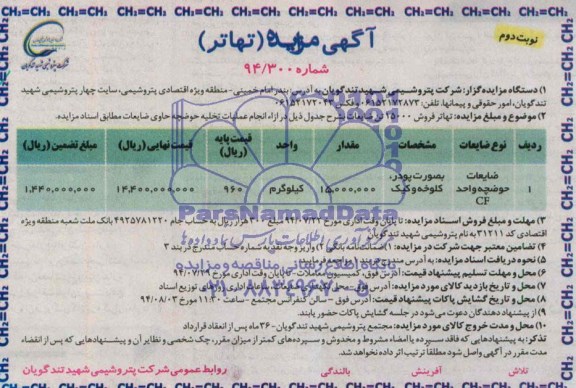 CH₂=CH₂ CH₂=CH₂ CH₂=CH₂ CH₂=CH₂ CH₂=CH₂
نوبت دوم
آگهی مزایده (تهاتر)
شماره ۹۴/۳۰۰
شرکت پتروشیمی شهید تندگویان
۱) دستگاه مزایده‌گزار: شرکت پتروشیمی شهید تندگویان به آدرس: بندر امام خمینی - منطقه ویژه اقتصادی پتروشیمی، سایت چهار پتروشیمی شهید
تندگویان، امور حقوقی و پیمانها، تلفن: ۰۶۱۵۲۱۷۲۸۷۳ وفکس: ۰۶۱۵۲۱۷۲۰۴۳
۲) موضوع و مبلغ مزایده: تهاتر فروش ۱۵۰۰۰ تن ضایعات بشرح جدول ذیل در ازاء انجام عملیات تخلیه حوضچه حاوی ضایعات مطابق اسناد مزایده.
ردیف نوع ضایعات مشخصات مقدار واحد قیمت پایه (ریال) قیمت نهایی (ریال) مبلغ تضمین (ریال)
۱ ضایعات حوضچه واحد CF بصورت پودر، کلوخه و کیک ۱۵،۰۰۰،۰۰۰ کیلوگرم ۹۶۰ ۱۴،۴۰۰،۰۰۰،۰۰۰ ۱،۴۴۰،۰۰۰،۰۰۰
ParsNamadData
پایگاه اطلاع رسانی مناقصه و مزایده
۳) مهلت و مبلغ فروش اسناد مزایده: تا پایان وقت اداری مورخ ۹۴/۰۷/۲۲ هزار ریال به حساب جام ۴۹۲۵۷۸۱۲۲۰ بانک ملت شعبه منطقه ویژه
اقتصادی کد ۳۱۲۱۱ به نام پتروشیمی شهید تندگویان
۴) تضامین معتبر جهت شرکت در مزایده: ۱) ضمانتنامه بانکی ۲) واریز وجه نقد به شماره حساب مندرج در بند ۳
۵) نحوه دریافت اسناد مزایده: به آدرس مندرج در بند ۱ مراجعه فرمایید.
۶) محل و مهلت تسلیم پیشنهاد قیمت: آدرس فوق، کمیسیون معاملات - تا پایان وقت اداری مورخ ۹۴/۰۷/۲۹
۷) محل و تاریخ بازدید کالای مورد مزایده: آدرس فوق - روزهای توزیع اسناد
۸) محل و تاریخ گشایش پاکات پیشنهاد قیمت: آدرس فوق - سالن کنفرانس مجتمع - ساعت ۱۱:۳۰ مورخ ۹۴/۰۸/۰۳
۹) از پیشنهاد دهندگان دعوت می‌شود در جلسه گشایش پاکات حضور یابند.
۱۰) محل و مدت خروج کالای مورد مزایده: مجتمع پتروشیمی شهید تندگویان - ۳۶ ماه پس از انعقاد قرارداد
تذکر: به پیشنهادهایی که فاقد سپرده یا امضاء مشروط و مخدوش و سپرده‌های کمتر از میزان مقرر، چک شخصی و نظایر آن و پیشنهادهایی که پس از انقضاء
مدت مقرر در آگهی واصل شود مطلقاً ترتیب اثر داده نخواهد شد.
روابط عمومی شرکت پتروشیمی شهید تندگویان
بالندگی آفرینش تلاش
CH₂=CH₂ CH₂=CH₂ CH₂=CH₂ CH₂=CH₂ CH₂=CH₂